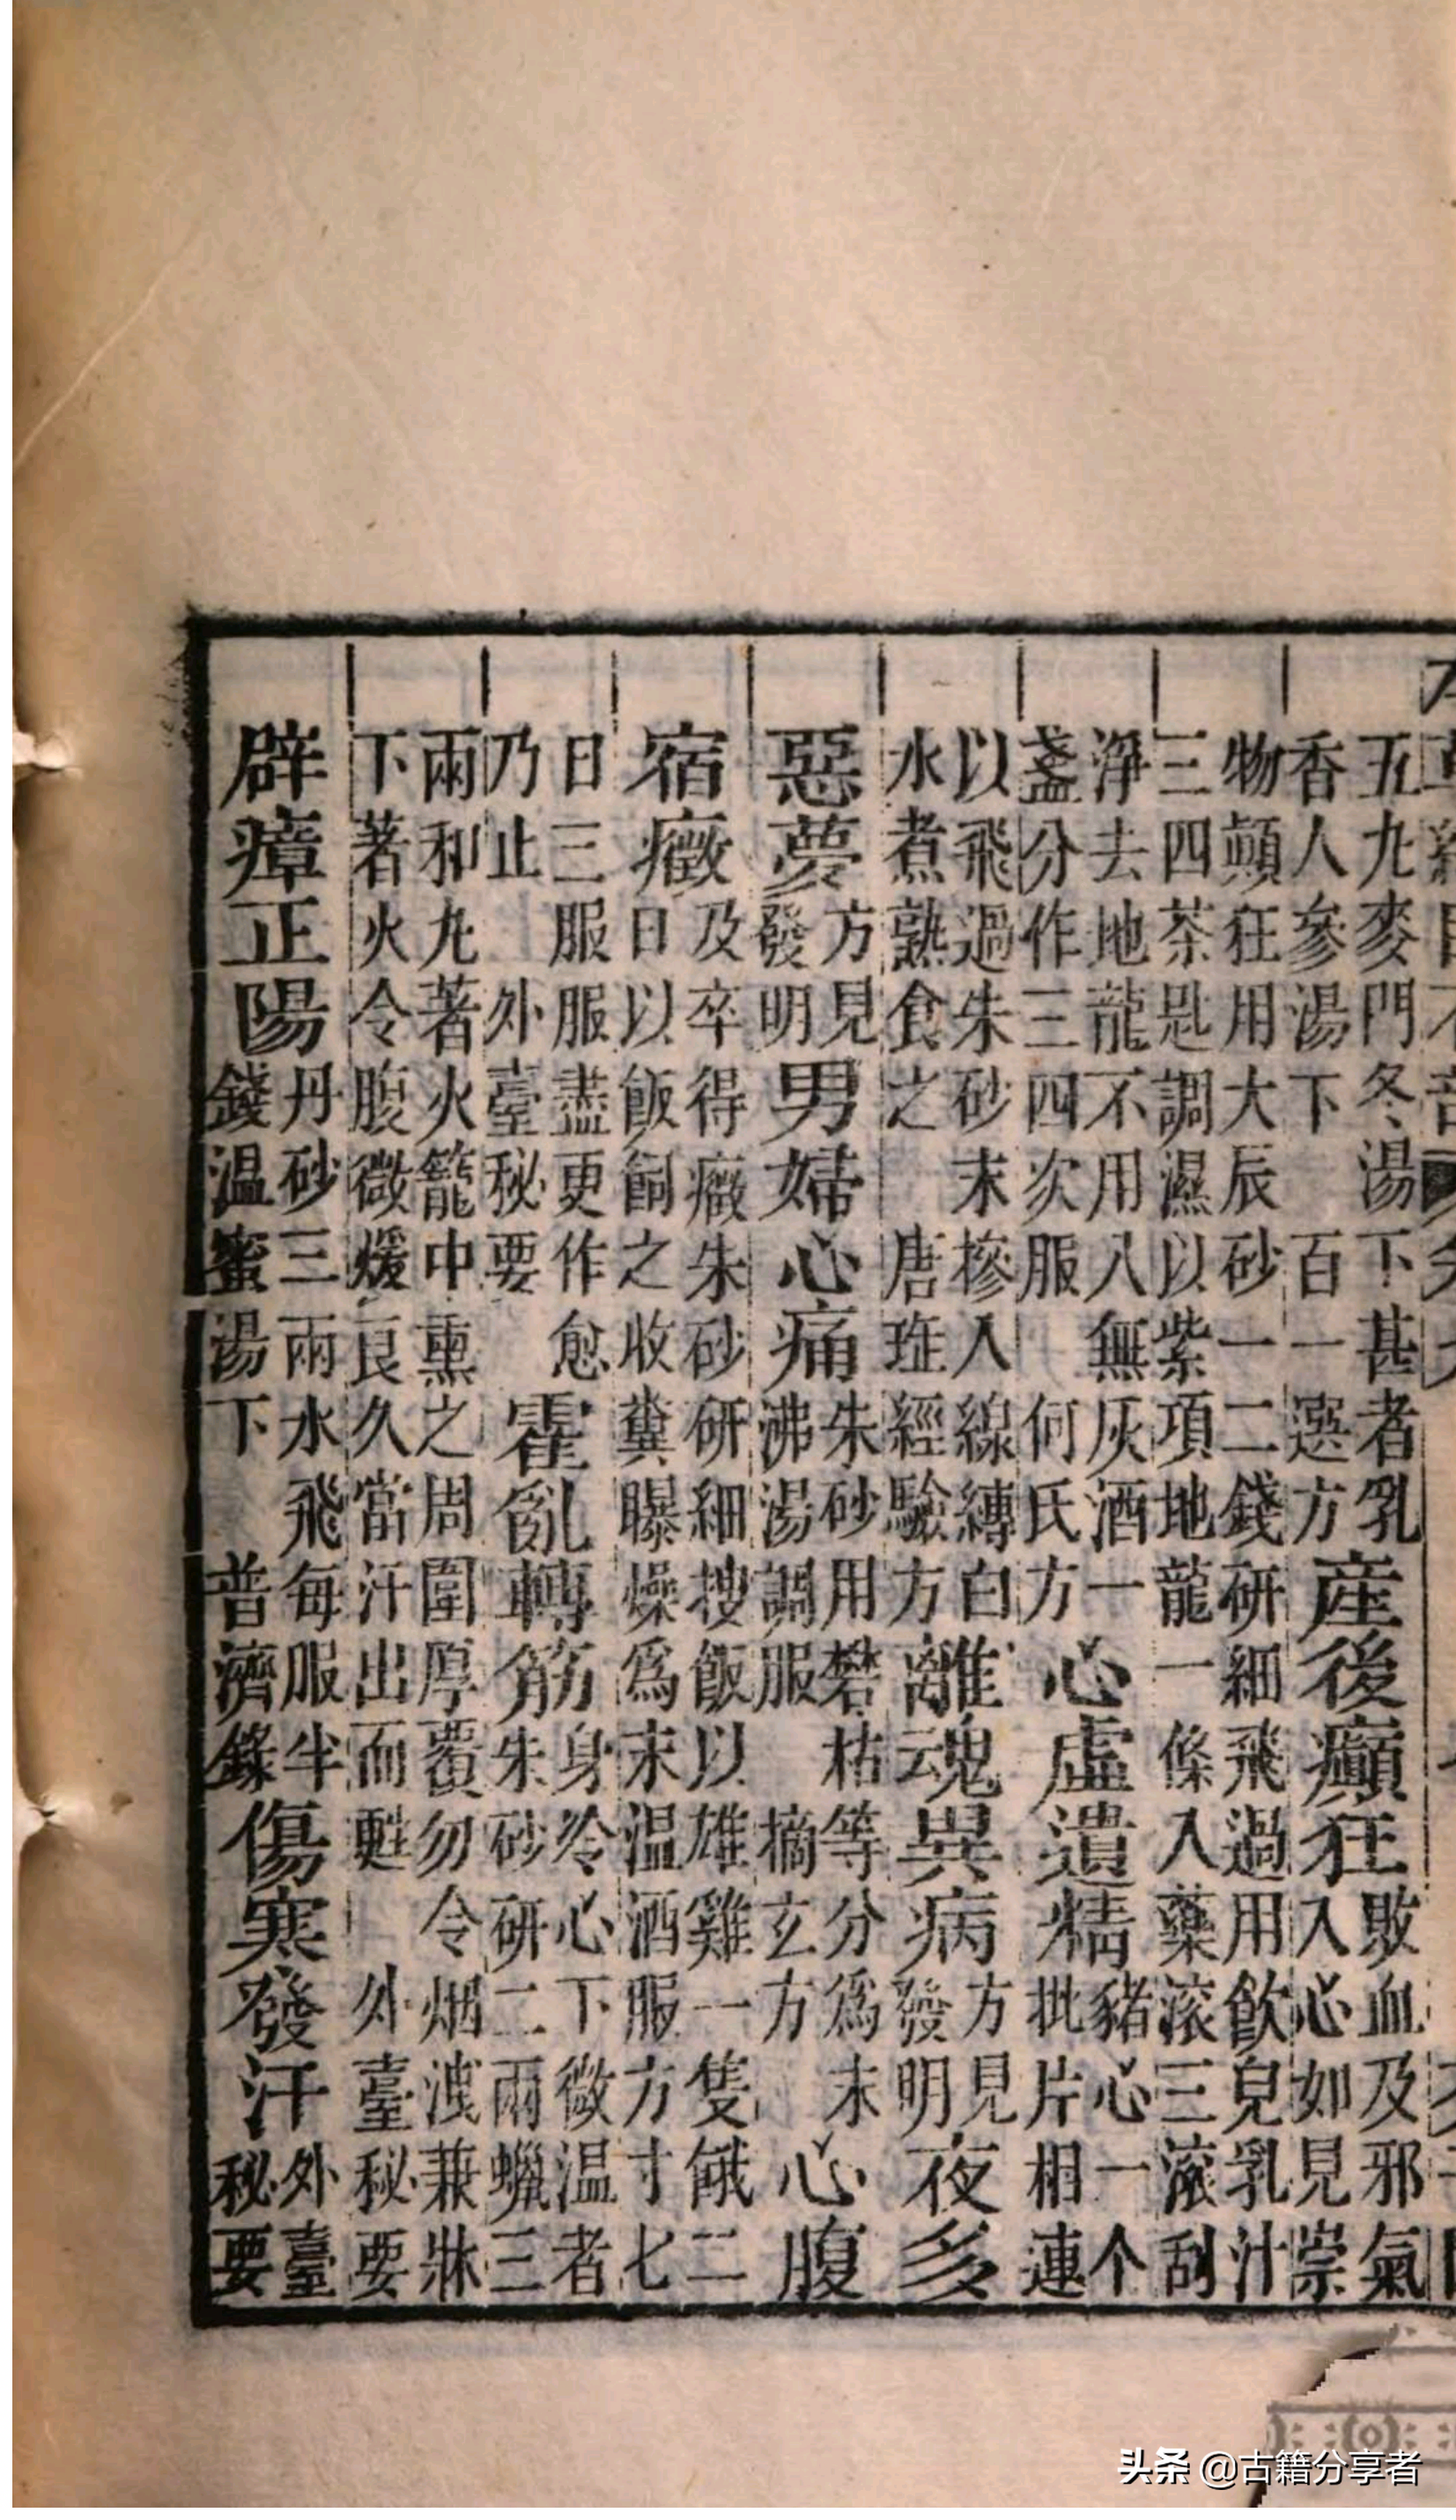 五九麥門冬湯下甚者乳
香人參湯下 百一選方
產後癲狂
敗血及邪氣
入心如見祟
物顛狂用大辰砂一二錢研細飛過用飲兒乳汁
三四茶匙調濕以紫項地龍一條入藥滾三滾刮
淨去地龍不用入無灰酒一
盞分作三四次服 何氏方
心虛遺精
豬心一个
批片相連
以飛過朱砂末摻入線縛白
水煮熟食之 唐經驗方
離魂異病
方見
發明
夜多
惡夢
方見
發明
男婦心痛
朱砂用礬枯等分為末
沸湯調服 摘玄方
心腹
宿癥
及卒得癥朱砂研細搜飯以雄雞一隻餓二
日以飯飼之收糞曝燥爲末温酒服方寸七
日三服服盡更作愈
乃止 外臺秘要
霍亂轉筋
身冷心下微温者
朱砂研二兩蠟三
兩和九著火籠中熏之周圍厚覆勿令烟洩兼牀
下著火令腹微煖良久當汗出而甦 外臺秘要
辟瘴正陽
丹砂三兩水飛每服半
錢温蜜湯下 普濟錄
傷寒發汗
外臺
秘要
头条 @古籍分享者